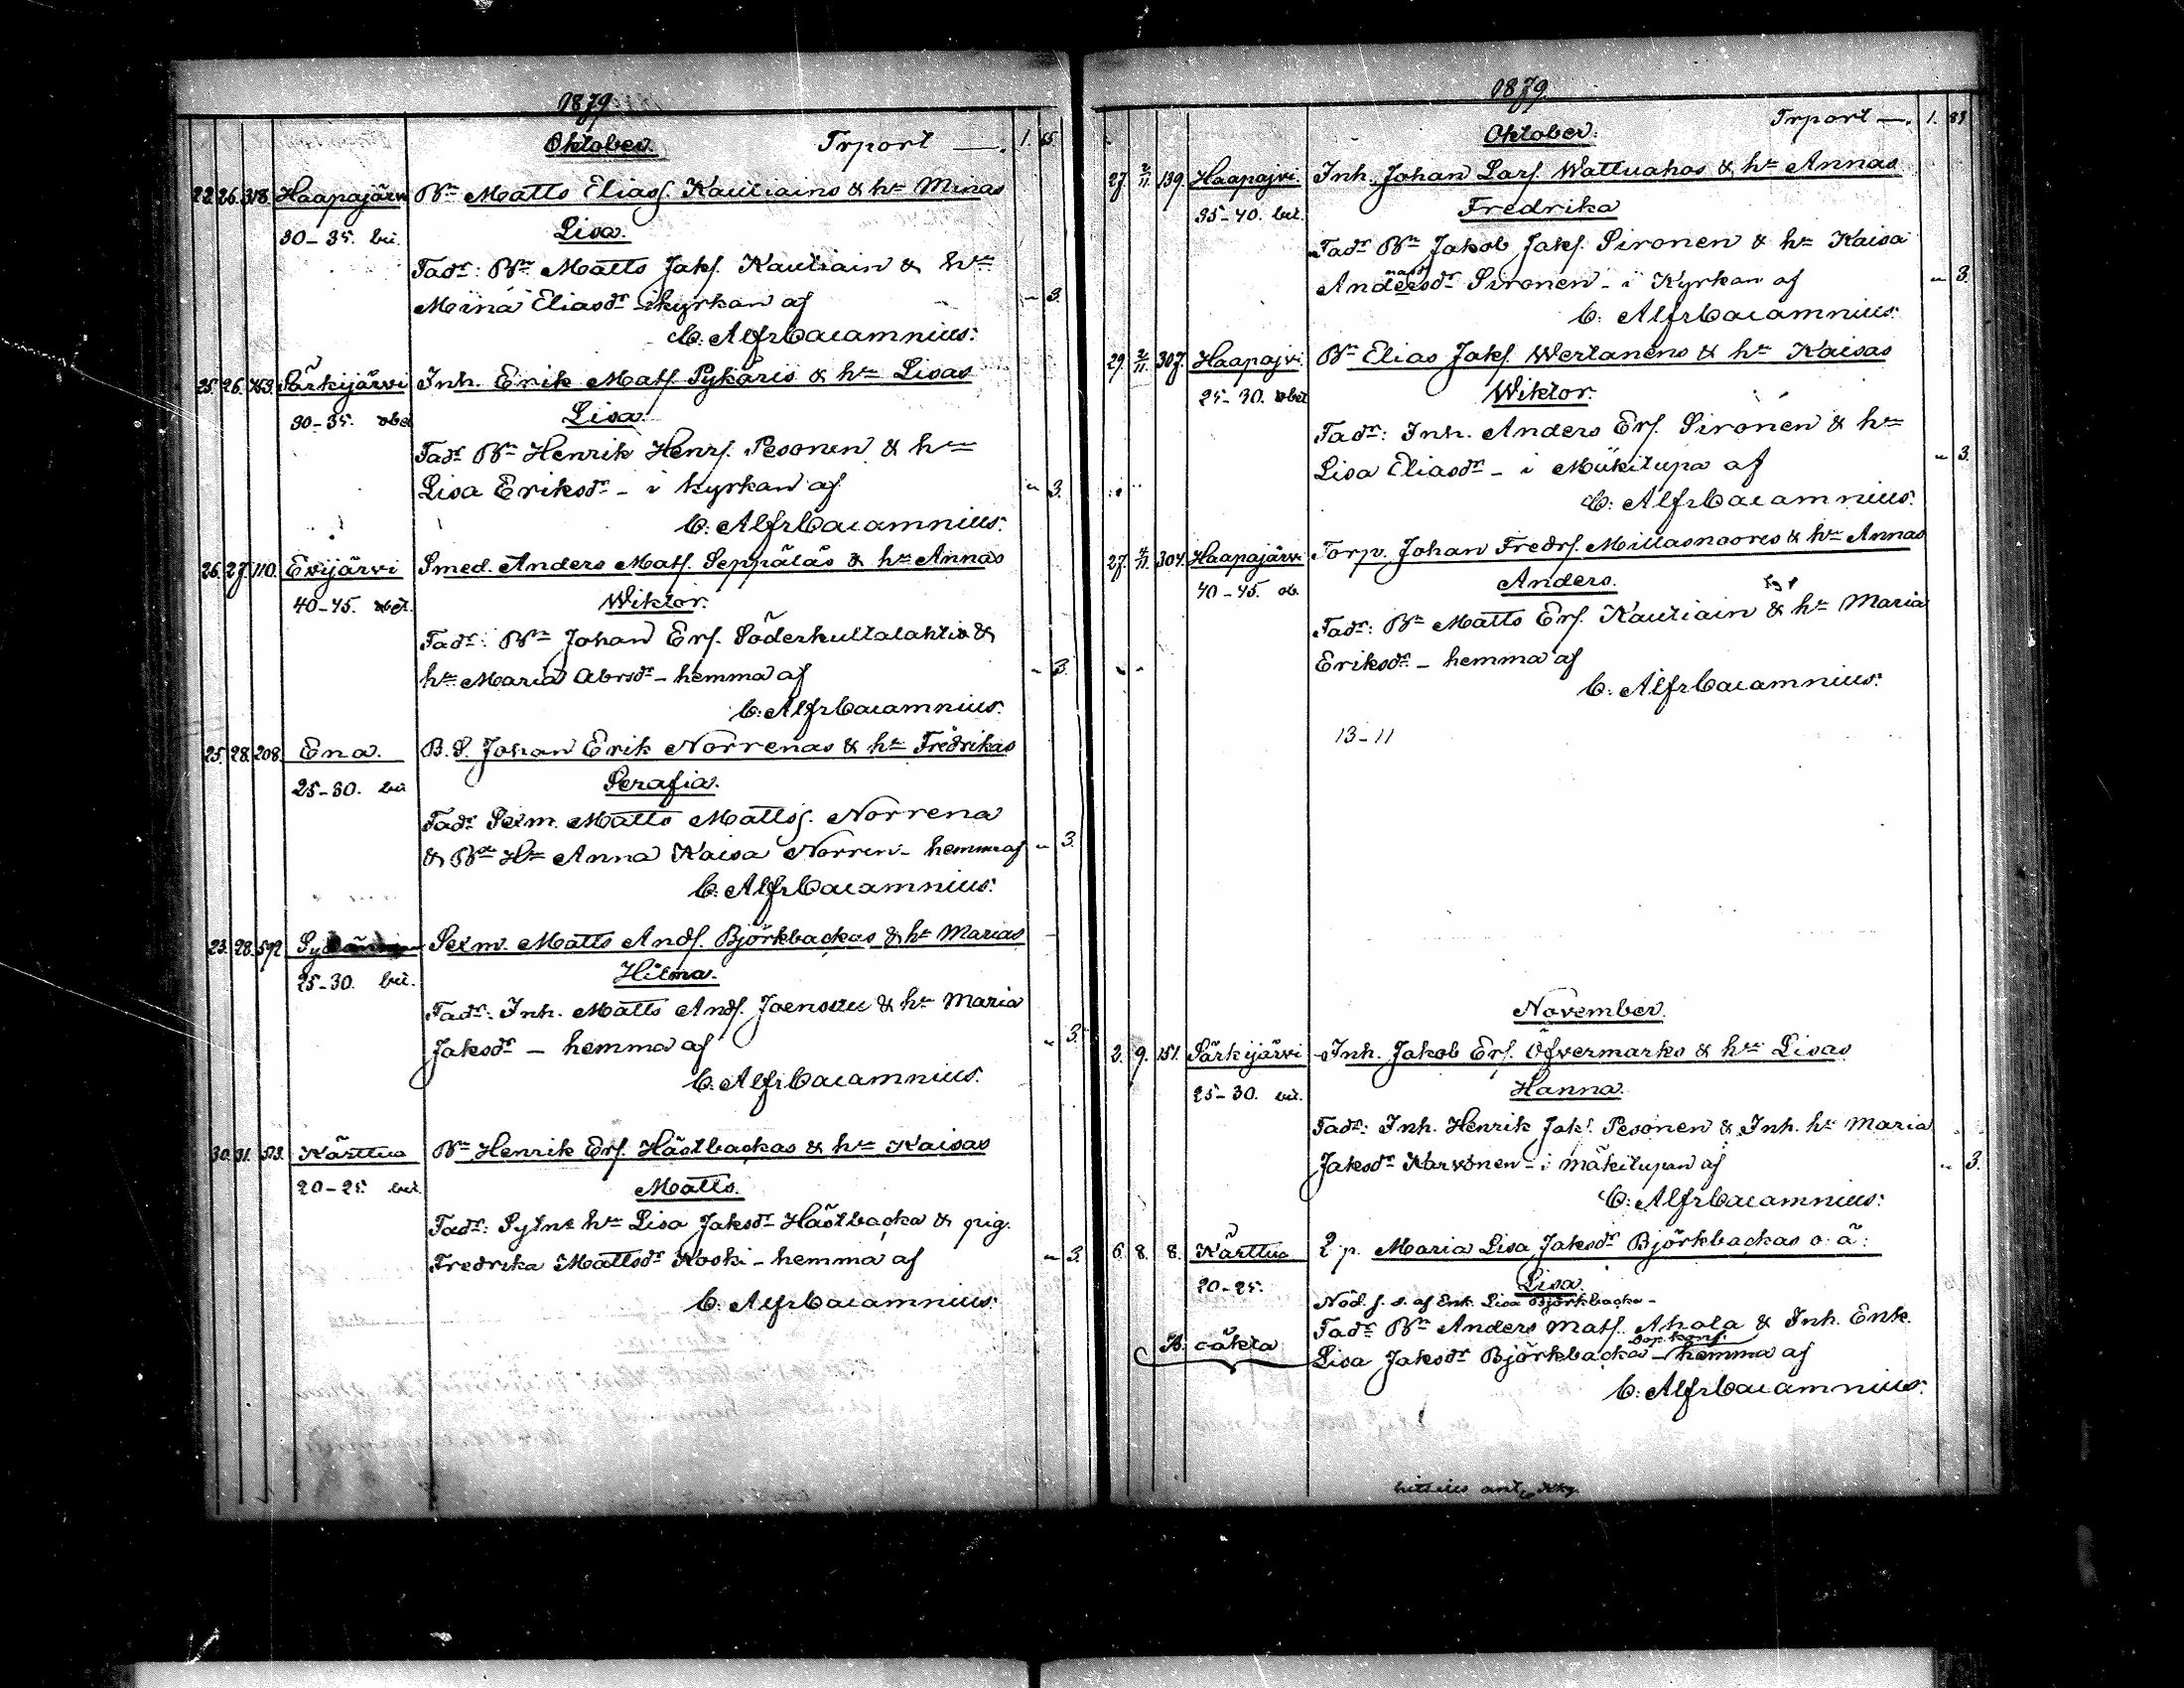 1879
Oktober. Trport —. 1. 65
22. 26. 318. Haapajärvi Bn Matts Eliass. Kautiains & hu Minas
30-35. bet. Lisa.
Fadr: Bn Matts Jaks. Kautiain & hu
Mina Eliasdr - i kyrkan af " 3.
C. Alfr Cajamnius.
25. 26. 153. Särkijärvi Inh. Erik Mats. Pykäris & hu Lisas
30-35. obet Lisa.
Fadr Bn Henrik Henrs. Pesonen & hu
Lisa Eriksdr - i kyrkan af " 3.
C. Alfr Cajamnius.
26. 27. 110. Evijärvi Smed. Anders Mats. Seppäläs & hu Annas
40-45. obet. Wiktor.
Fadr: Bn Johan Ers. Söderkultalahtis &
hu Maria Abrsdr - hemma af " 3.
C. Alfr Cajamnius.
25. 28. 208. Ena. B.S. Johan Erik Norrenas & hu Fredrikas
25-30. bet Serafia.
Fadr Sexm. Matts Matts. Norrena
& Bn Hu Anna Kaisa Norren - hemma af " 3.
C. Alfr Cajamnius.
23. 28. 592 Sexm. Matts Ands. Björkbackas & hu Marias
25-30. bet. Hilma.
Fadr: Inh. Matts Ands. Joensuu & hu Maria
Jaksdr - hemma af " 3.
C. Alfr Cajamnius.
30. 31. 513. Kärttus Bn Henrik Ers. Hästbackas & hu Kaisas
20-25. bet. Matts.
Fadr: Sytn. hu Lisa Jaksdr Hästbacka & pig.
Fredrika Mattsdr Koski - hemma af " 3.
C. Alfr Cajamnius.
1879
Oktober. Trport —. 1. 83
27. 2/11 139. Haapajvi. Inh. Johan Lars. Wattuahos & hu Annas
35-40. bet. Fredrika
Fadr Bn Jakob Jaks. Sironen & hu Kaisa
Andersdr Sironen - i Kyrkan af " 3.
C. Alfr Cajamnius.
29. 2/11 307. Haapajvi. Bn Elias Jaks. Wertanens & hu Kaisas
25-30. obet Wiktor.
Fadr: Inh. Anders Ers. Sironen & hu
Lisa Eliasdr - i Mäkitupa af " 3.
C. Alfr Cajamnius.
27. 2/11 304. Haapajärvi Torp. Johan Fredrs. Millasnoores & hu Annas
40-45. ob. Anders.
Fadr: Bn Matts Ers. Kautiain & hu Maria
Eriksdr - hemma af
C. Alfr Cajamnius.
13-11
November.
3. 9. 151. Särkijärvi Inh. Jakob Ers. Öfvermarks & hu Lisas
25-30. bet. Hanna.
Fadr: Inh. Henrik Jaks. Pesonen & Inh. hu Maria
Jaksdr Karvonen - i mäkitupan af " 3.
C. Alfr Cajamnius.
6. 8. 8. Kärttus Q p. Maria Lisa Jaksdr Björkbackas o. ä:
20-25. Lisa
Nöd. f. s. af Enk. Lisa Björkbacka -
Fadr Bn Anders Mats. Ahola & Inh. Enk.
oäkta Lisa Jaksdr Björkbacka - Dop. konf. hemma af
C. Alfr Cajamnius.